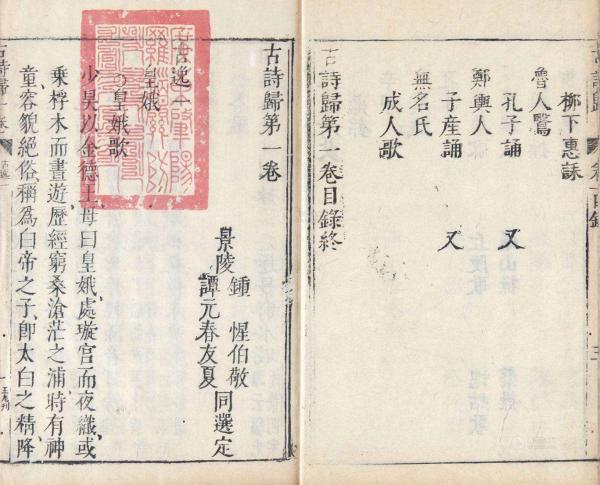 柳下惠誄
魯人鷖
孔子誦　又
鄭輿人
子產誦　又
無名氏
成人歌
古詩歸第一卷目錄終
古詩歸第一卷
景陵　鍾　惺伯敬
譚元春友夏　同選定
古逸一
皇娥
皇娥歌
少昊以金德王母曰皇娥處璇宮而夜織或
乘桴木而晝遊歷經窮桑滄茫之浦時有神
童容貌絕俗稱爲白帝之子卽太白之精降